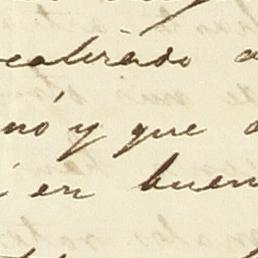 ealizado a
nó y que
i en buen